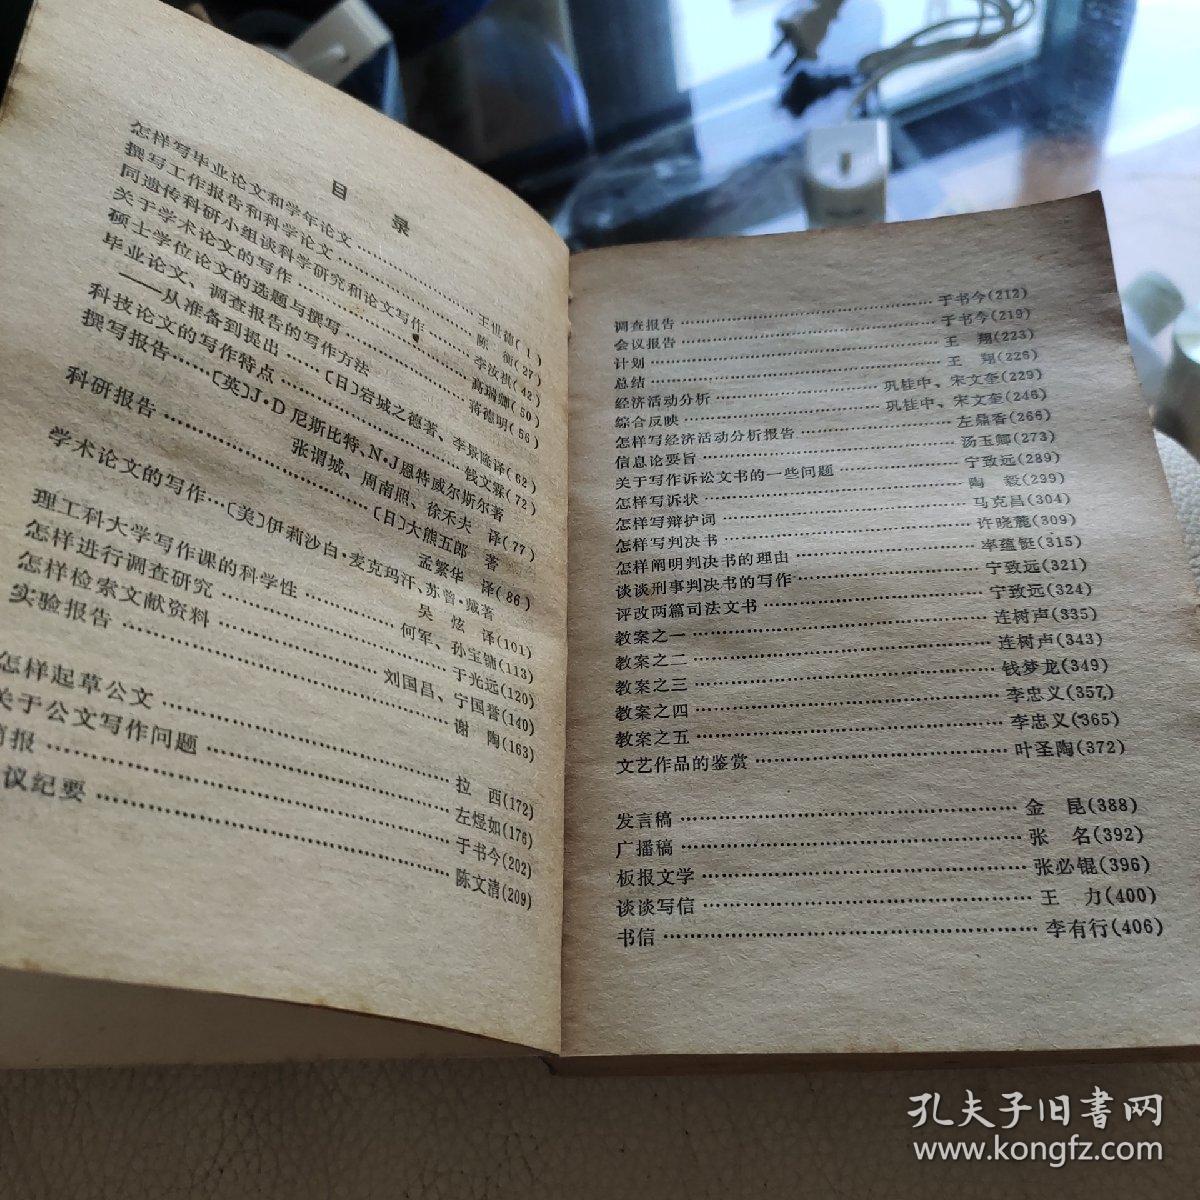 目 录
怎样写毕业论文和学年论文……王世德(1)
撰写工作报告和科学论文……陈 衡(27)
同遗传科研小组谈科学研究和论文写作……李汝祺(42)
关于学术论文的写作……高瑞卿(50)
硕士学位论文的选题与撰写……蒋德明(56)
毕业论文、调查报告的写作方法
——从准备到提出……〔日〕岩城之德著、李景隆译(62)
科技论文的写作特点……钱文霖(72)
撰写报告……〔英〕J·D尼斯比特、N·J恩特威尔斯尔著
张谓城、周南照、徐禾夫 译(77)
科研报告……〔日〕大熊五郎 著
孟繁华 译(86)
学术论文的写作…〔美〕伊莉沙白·麦克玛汗、苏曾·戴著
吴 炫 译(101)
理工科大学写作课的科学性……何军、孙宝镛(113)
怎样进行调查研究……于光远(120)
怎样检索文献资料……刘国昌、宁国誉(140)
实验报告……谢 陶(163)
怎样起草公文……拉 西(172)
关于公文写作问题……左煜如(176)
简报……于书今(202)
议纪要……陈文清(209)
调查报告……于书今(212)
会议报告……于书今(219)
计划……王 翔(223)
总结……王 翔(226)
经济活动分析……巩桂中、宋文奎(229)
综合反映……巩桂中、宋文奎(246)
怎样写经济活动分析报告……左鼎香(266)
信息论要旨……汤玉卿(273)
关于写作诉讼文书的一些问题……宁致远(289)
怎样写诉状……陶 毅(299)
怎样写辩护词……马克昌(304)
怎样写判决书……许晓麓(309)
怎样阐明判决书的理由……率蕴铤(315)
谈谈刑事判决书的写作……宁致远(321)
评改两篇司法文书……宁致远(324)
教案之一……连树声(335)
教案之二……连树声(343)
教案之三……钱梦龙(349)
教案之四……李忠义(357)
教案之五……李忠义(365)
文艺作品的鉴赏……叶圣陶(372)
发言稿……金 昆(388)
广播稿……张 名(392)
板报文学……张必锟(396)
谈谈写信……王 力(400)
书信……李有行(406)
孔夫子旧书网
www.kongfz.com